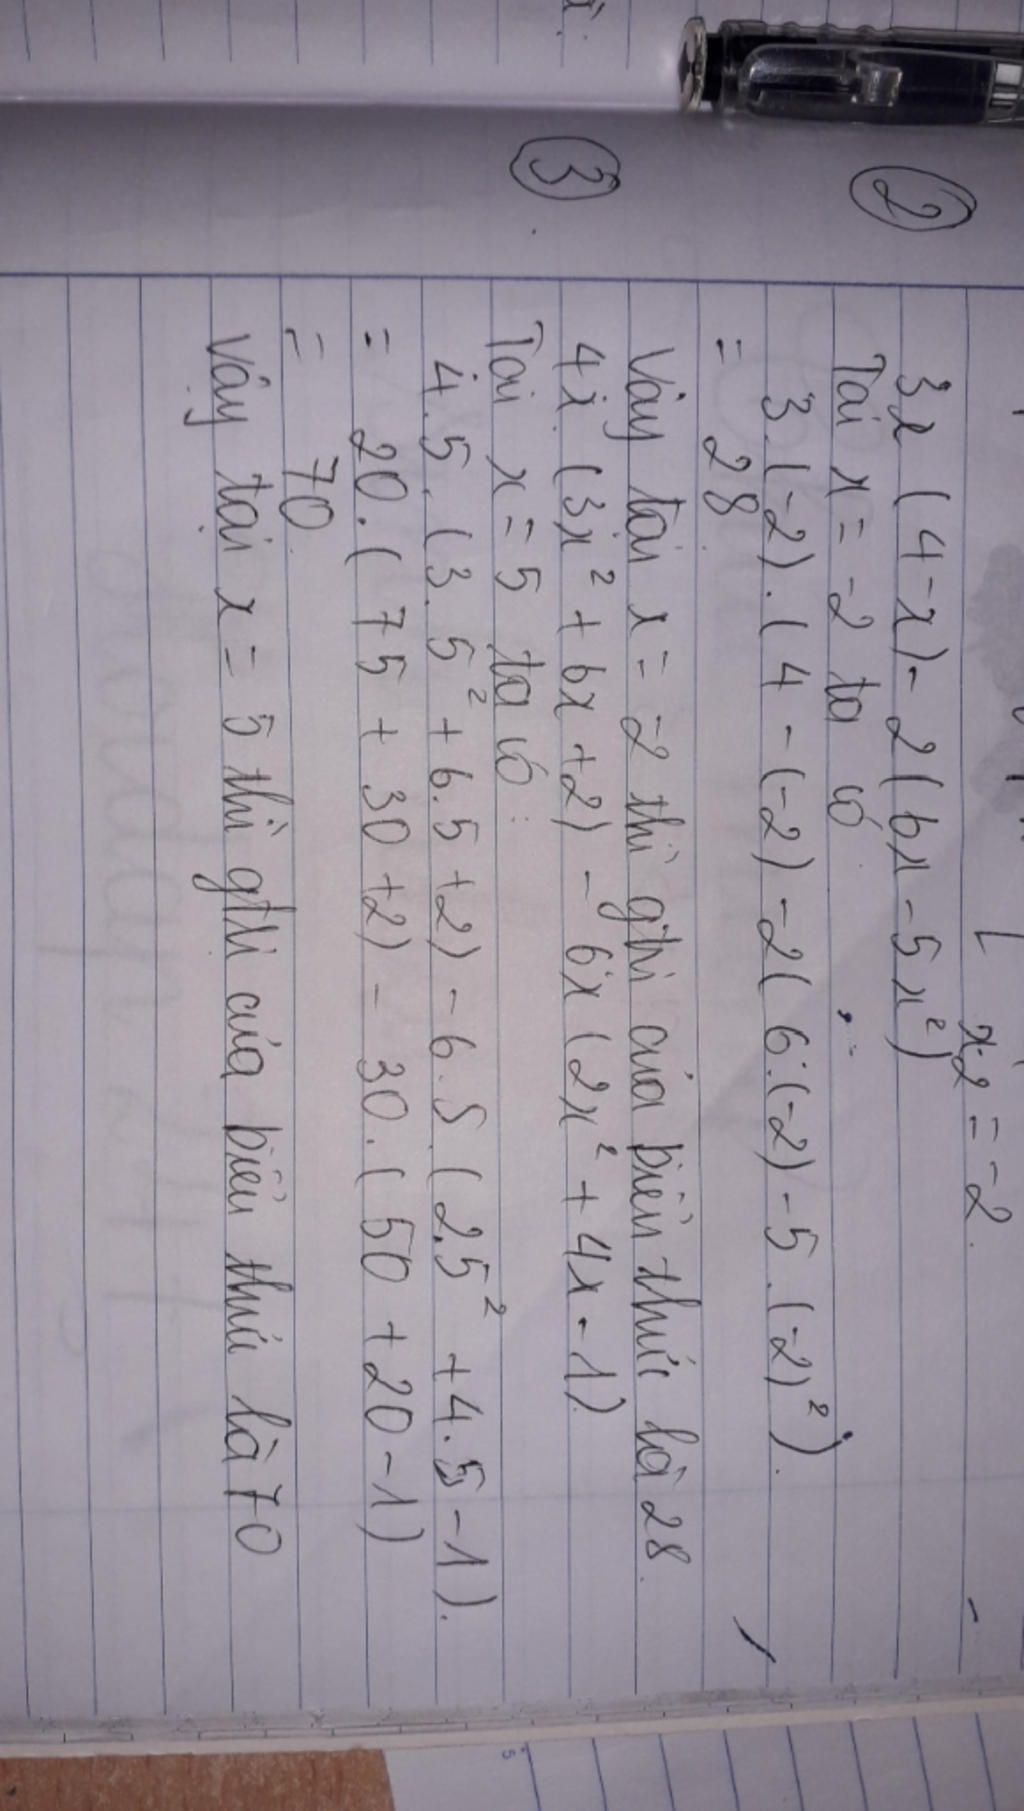 x2 = -2.
② 3x (4-x) - 2(6x - 5x²)
Tại x = -2 ta có
3.(-2).(4 - (-2) - 2(6.(-2) - 5.(-2)²).
= 28.
Vậy tại x = -2 thì gtri của biển thức là 28.
③ 4x. (3x² + 6x + 2) - 6x (2x² + 4x - 1).
Tại x = 5 ta có:
4.5.(3.5² + 6.5 + 2) - 6.5.(2.5² + 4.5 - 1).
= 20.(75 + 30 + 2) - 30.(50 + 20 - 1)
= 70.
Vậy tại x = 5 thì gtri của biển thức là 70